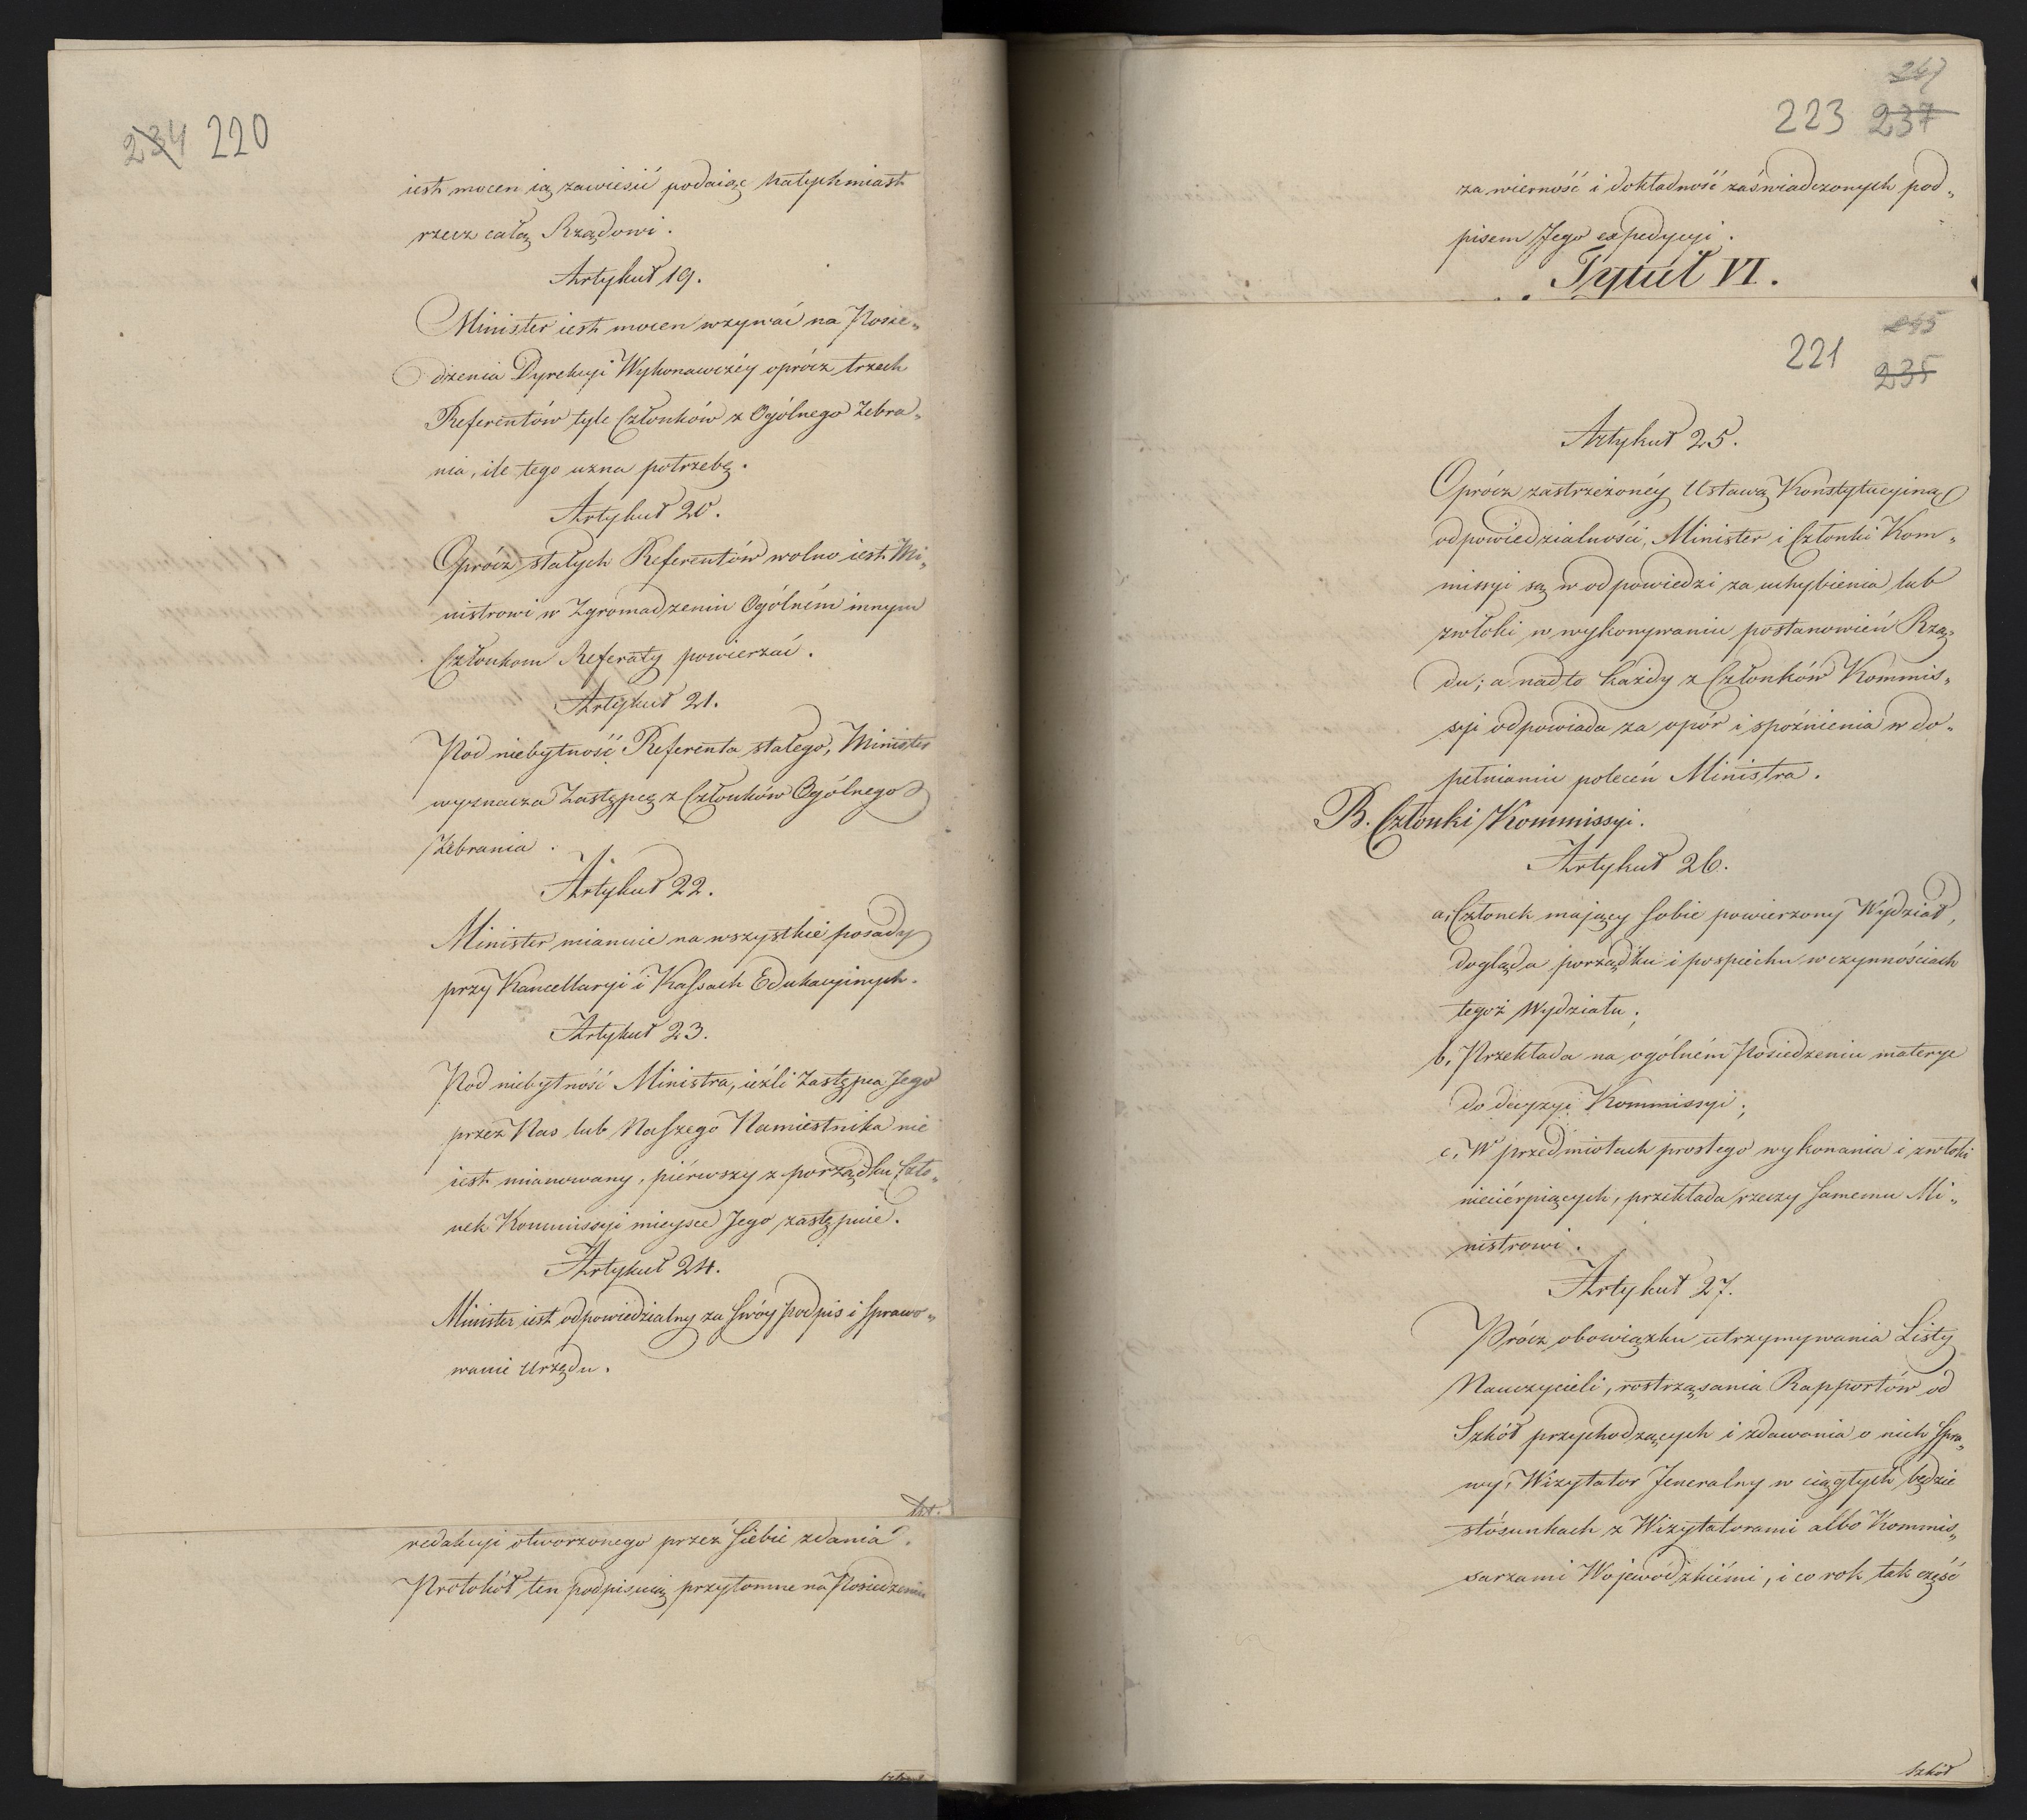 234 220
iest mocen ią zawiesić podaiąc natychmiast
rzecz całą Rządowi.
Artykuł 19.
Minister iest mocen wzywać na Posie„
dzenia Dyrekcyi Wykonawczéy oprócz trzech
Referentów tyle Członków z Ogólnego Zebra„
nia, ile tego uzna potrzebę.
Artykuł 20.
Oprócz stałych Referentów wolno iest Mi„
nistrowi w Zgromadzeniu Ogólném innym
Członkom Referaty powierzać.
Artykuł 21.
Pod niebytność Referenta stałego, Minister
wyznacza Zastępcę z Członków Ogólnego
Zebrania.
Artykuł 22.
Minister mianuie na wszystkie posady
przy Kancellaryi i Kassach Edukacyinych.
Artykuł 23.
Pod niebytność Ministra, ieźli Zastępca Jego
przez Nas lub Naszego Namiestnika nie
iest mianowany, piérwszy z porządku Czło„
nek Kommissyi mieysce Jego zastępuie.
Artykuł 24.
Minister iest odpowiedzialny za swóy podpis i sprawo„
wanie Urzędu.
redakcyi otworzonego przez siebie zdania.
Protokół ten podpisuią przytomne na Posiedzeniu
223 237
za wierność i dokładność zaświadczonych pod„
pisem Jego expedycyi.
Tytuł VI.
221
235
Artykuł 25.
Oprócz zastrzeżonéy Ustawą Konstytucyiną
odpowiedzialności, Minister i Członki Kom„
missyi są w odpowiedzi za uchybienia lub
zwłoki w wykonywaniu postanowień Rzą„
du; a nadto każdy z Członków Kommis„
syi odpowiada za opór i spoźnienia w do„
pełnianiu poleceń Ministra.
B. Członki Kommissyi.
Artykuł 26.
a, Członek maiący sobie powierzony Wydział,
dogląda porządku i pospiechu w czynnościach
tegoż Wydziału;
b, Przekłada na ogólném Posiedzeniu materye
do decyzyi Kommissyi;
c, W przedmiotach prostego wykonania i zwłoki
niecierpiących, przekłada rzeczy samemu Mi„
nistrowi.
Artykuł 27.
Prócz obowiązku utrzymywania Listy
Nauczycieli, rostrząsania Rapportów od
Szkół przychodzących i zdawania o nich spra„
wy, Wizytator Jeneralny w ciągłych będzie
stósunkach z Wizytatorami albo Kommis„
sarzami Wojewódzkiémi, i co rok tak część
Szkół